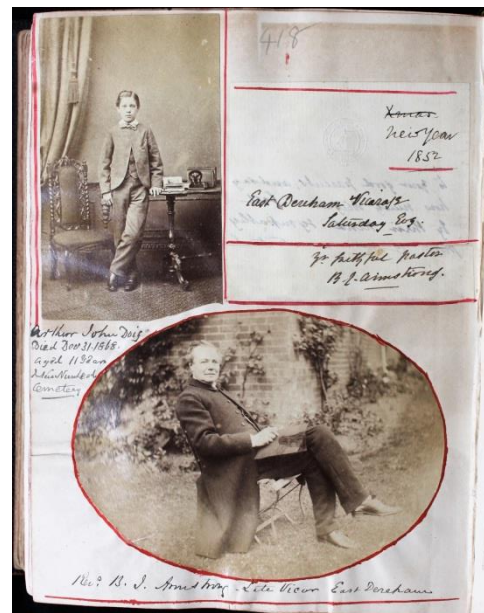 418
Xmas
New Year
1852
East Dereham Vicarage
Saturday Evg.
Yr faithful pastor
B.J. Armstrong.
Arthur John Doig
Died Decr 31. 1868.
aged 11
Cemetery
Revd. B. J. Armstrong Late Vicar East Dereham